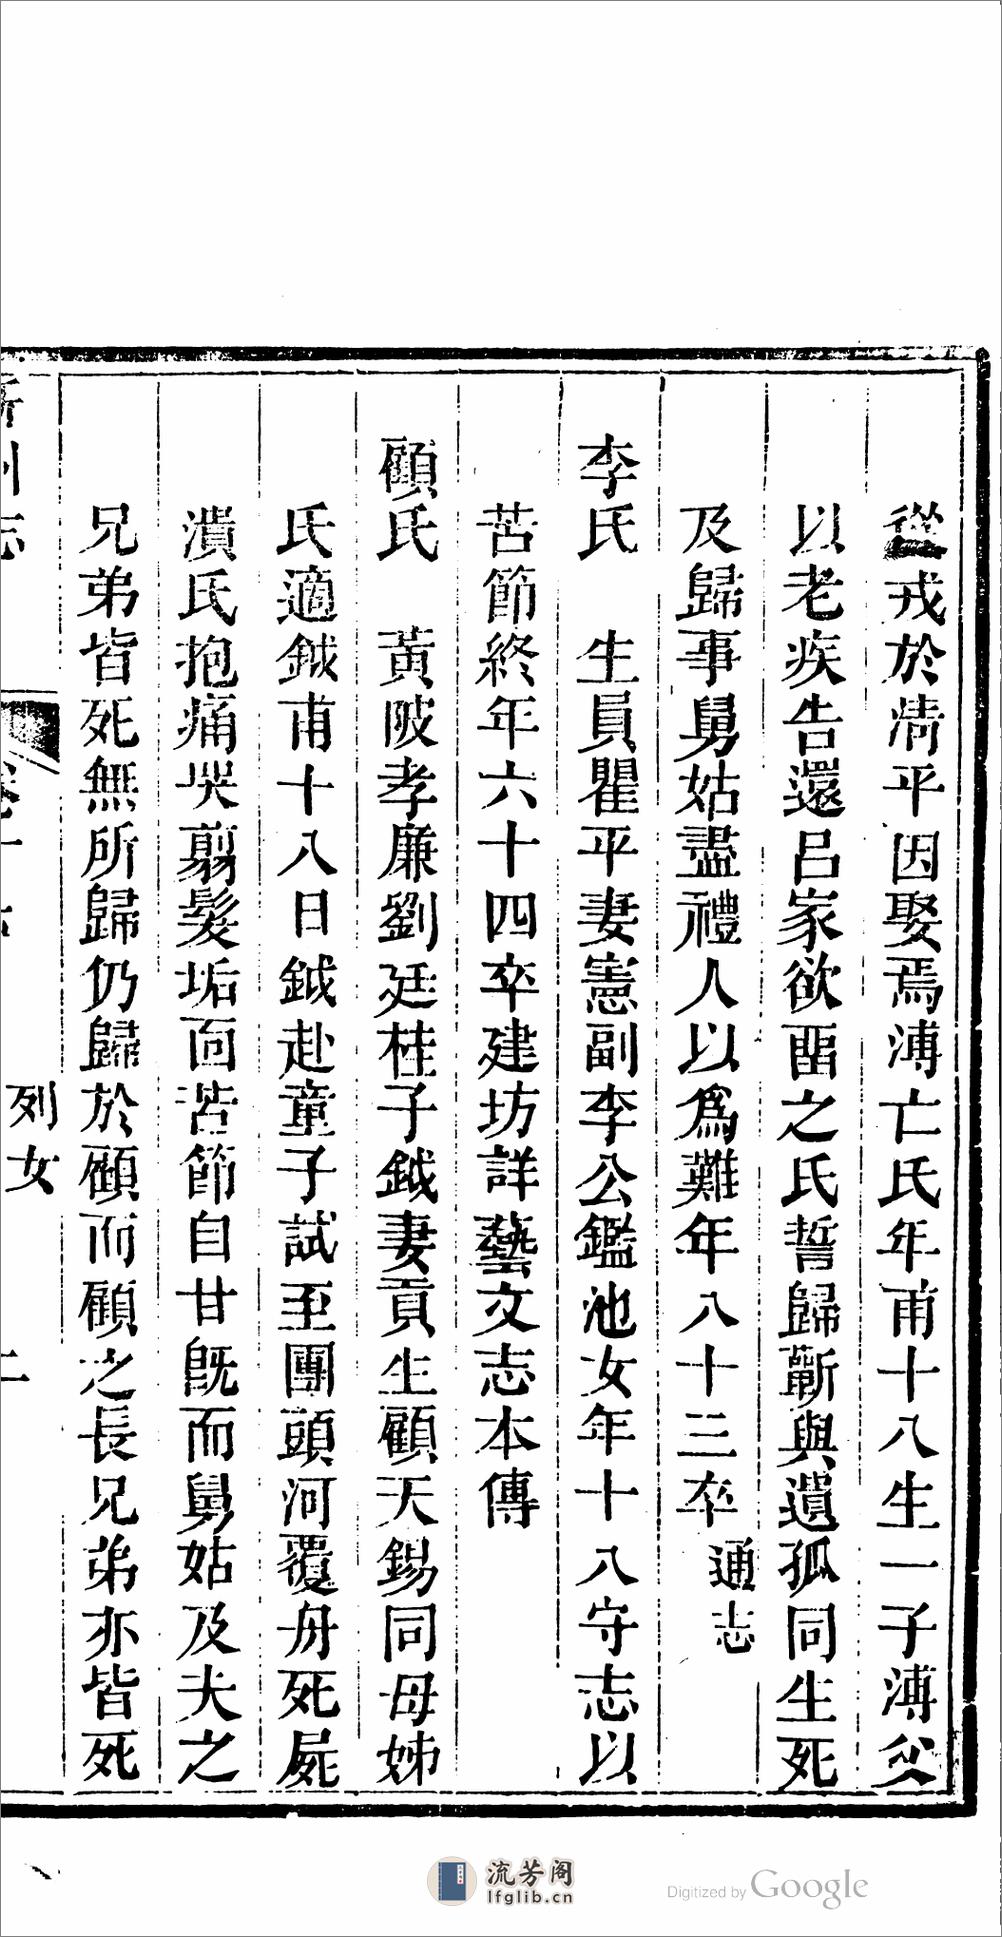 從戎於淸平因娶焉溥亡氏年甫十八生一子溥父
以老疾告還呂家欲畱之氏誓歸蘄與遺孤同生死
及歸事舅姑盡禮人以爲難年八十三卒 通志
李氏 生員瞿平妻憲副李公鑑池女年十八守志以
苦節終年六十四卒建坊詳藝文志本傳
顧氏 黃陂孝廉劉廷桂子鉞妻貢生顧天錫同母姊
氏適鉞甫十八日鉞赴童子試至團頭河覆舟死屍
潰氏抱痛哭翦髮垢面苦節自甘旣而舅姑及夫之
兄弟皆死無所歸仍歸於顧而顧之長兄弟亦皆死
州志
列女
流芳阁
lfglib.cn
Digitized by Google